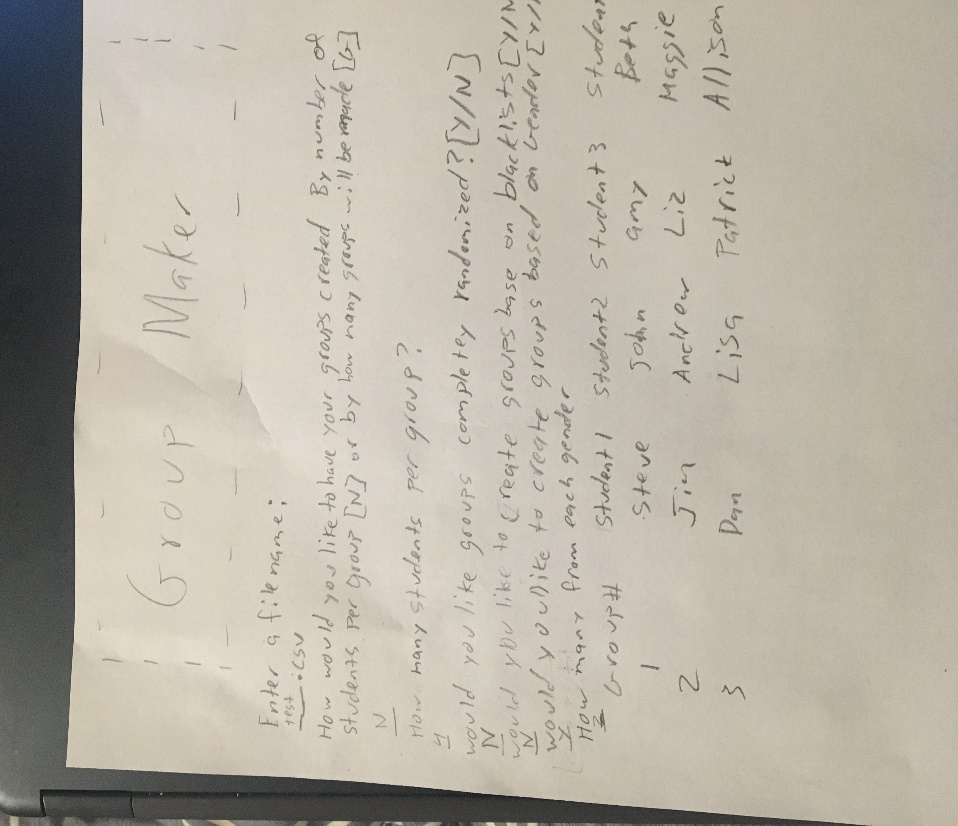 Group Maker
Enter a filename:
test.csv
How would you like to have your groups created By number of
students per Group [N] or by how many groups will be made [G]
N
How many students per group?
4
would you like groups completey randomized? [Y/N]
N
would you like to create groups base on blacklists [Y/N
N
would you like to create groups based on Gender [Y/
Y
How many from each gender
2
Group# Student1 Student2 Student3 Studen
1 Steve John amy Beth
2 Jim Andrew Liz Maggie
3 Dan Lisa Patrick Allison